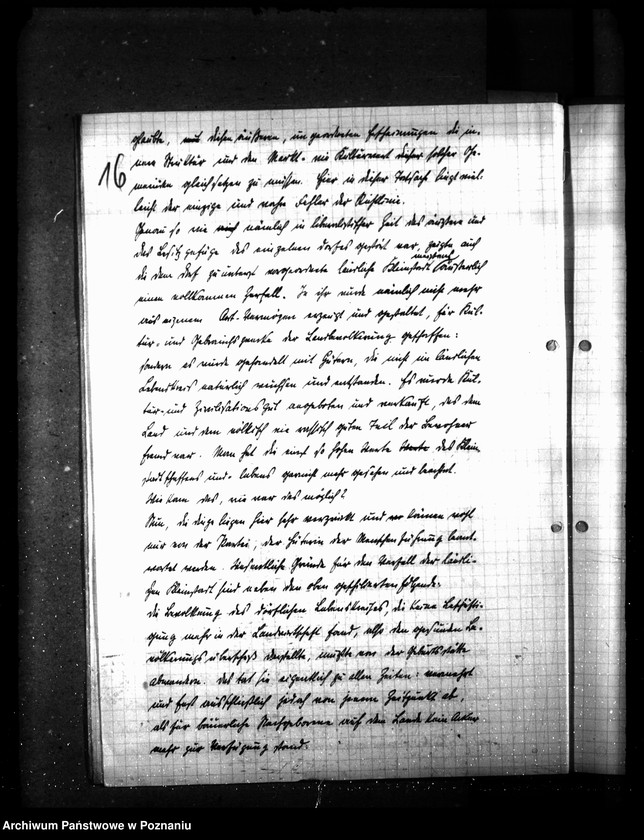 16
glaubte, mit diesen äußeren, ungeordneten Erscheinungen die in-
nere Struktur und den Markt- wie Kulturwert dieser solcher Ge-
meinden gleichsetzen zu müssen. Hier in dieser Tatsache liegt viel-
leicht der einzige und wahre Fehler der Richtlinie.
Genau so wie nämlich in liberalistischer Zeit das äußere und
das Besitzgefüge des einzelnen Dorfes gestört war, zeigte auch
die dem Dorf zunächst vorgeordnete ländliche Kleinstadt meistens äußerlich
einen vollkommenen Zerfall. In ihr wurde nämlich nicht mehr
aus eigenem Art-Vermögen erzeugt und gestaltet, für Kul-
tur- und Gebrauchszwecke der Landbevölkerung geschaffen:
sondern es wurde gehandelt mit Gütern, die nicht im ländlichen
Lebenskreis natürlich wuchsen und entstanden. Es wurde Kul-
tur- und Zivilisationsgut angeboten und verkauft, das dem
Land und dem völkisch wie rassisch guten Teil der Bewohner
fremd war. Man hat die einst so hohen Werte des Klein-
stadtschaffens und -lebens garnicht mehr gesehen und beachtet.
Wie kam das, wie war das möglich?
Nun, die Dinge liegen hier sehr verzwickt und können wohl
nur von der Partei, der Hüterin der Menschenführung beant-
wortet werden. Wesentliche Gründe für den Verfall der ländli-
chen Kleinstadt sind neben den oben geschilderten folgende:
Die Bevölkerung des dörflichen Lebenskreises, die keine Beschäfti-
gung mehr in der Landwirtschaft fand, also den gesunden Be-
völkerungsüberschuß darstellte, mußte von der Geburtsstätte
abwandern. Das tat sie eigentlich zu allen Zeiten: vermehrt
und fast ausschließlich jedoch von jenem Zeitpunkt ab,
als für bäuerliche Nachgeborene auf dem Lande kein Acker
mehr zur Verfügung stand.
Archiwum Państwowe w Poznaniu